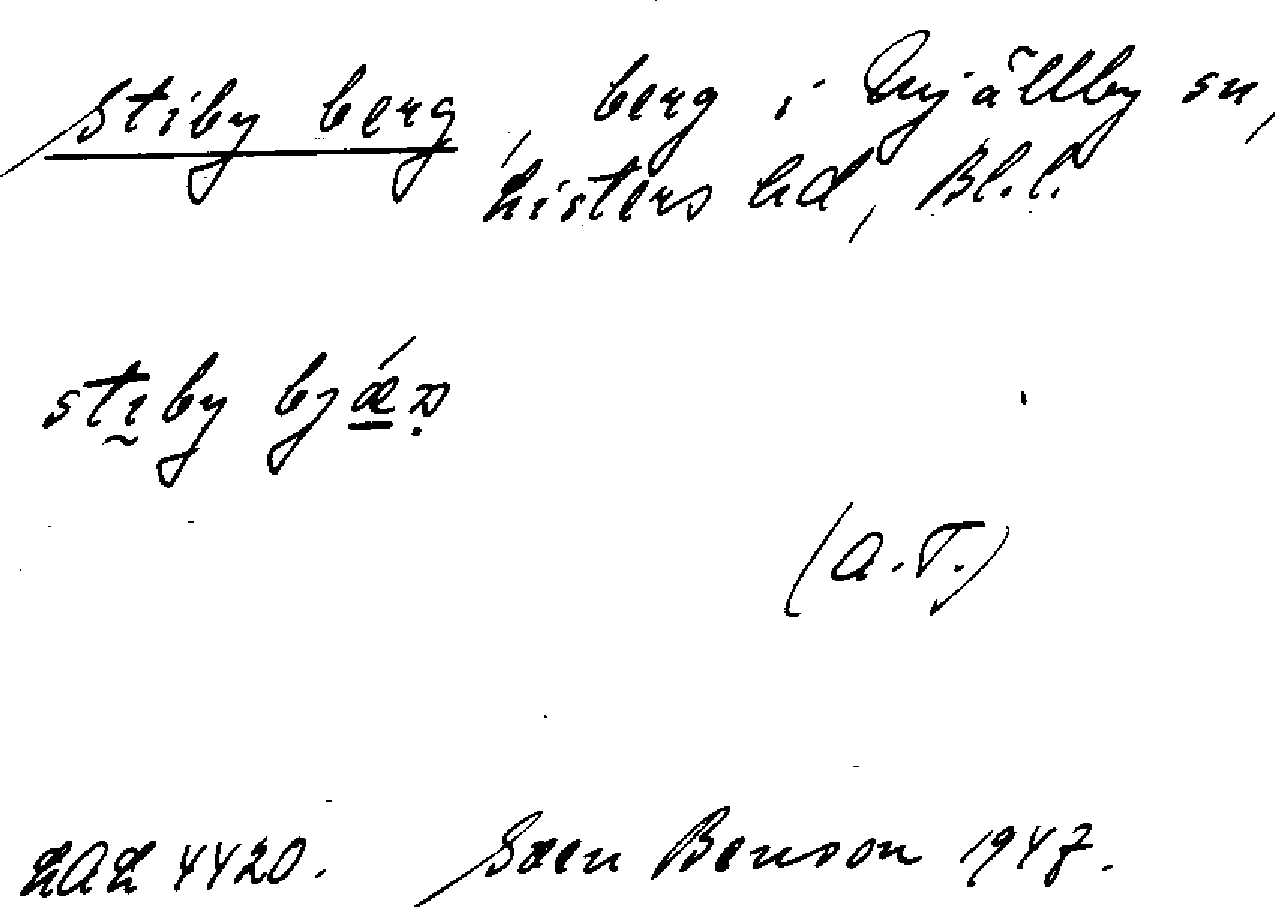 Stiby berg, berg i Mjällby sn,
Listers hd, Bl.l.
stɪ̰by bjǽ
(A.T.)
LAL 4420. Sven Benson 1947.